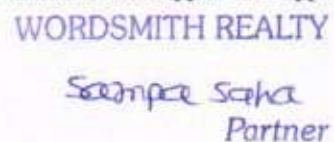 WORDSMITH REALTY
Sampa Saha
Partner